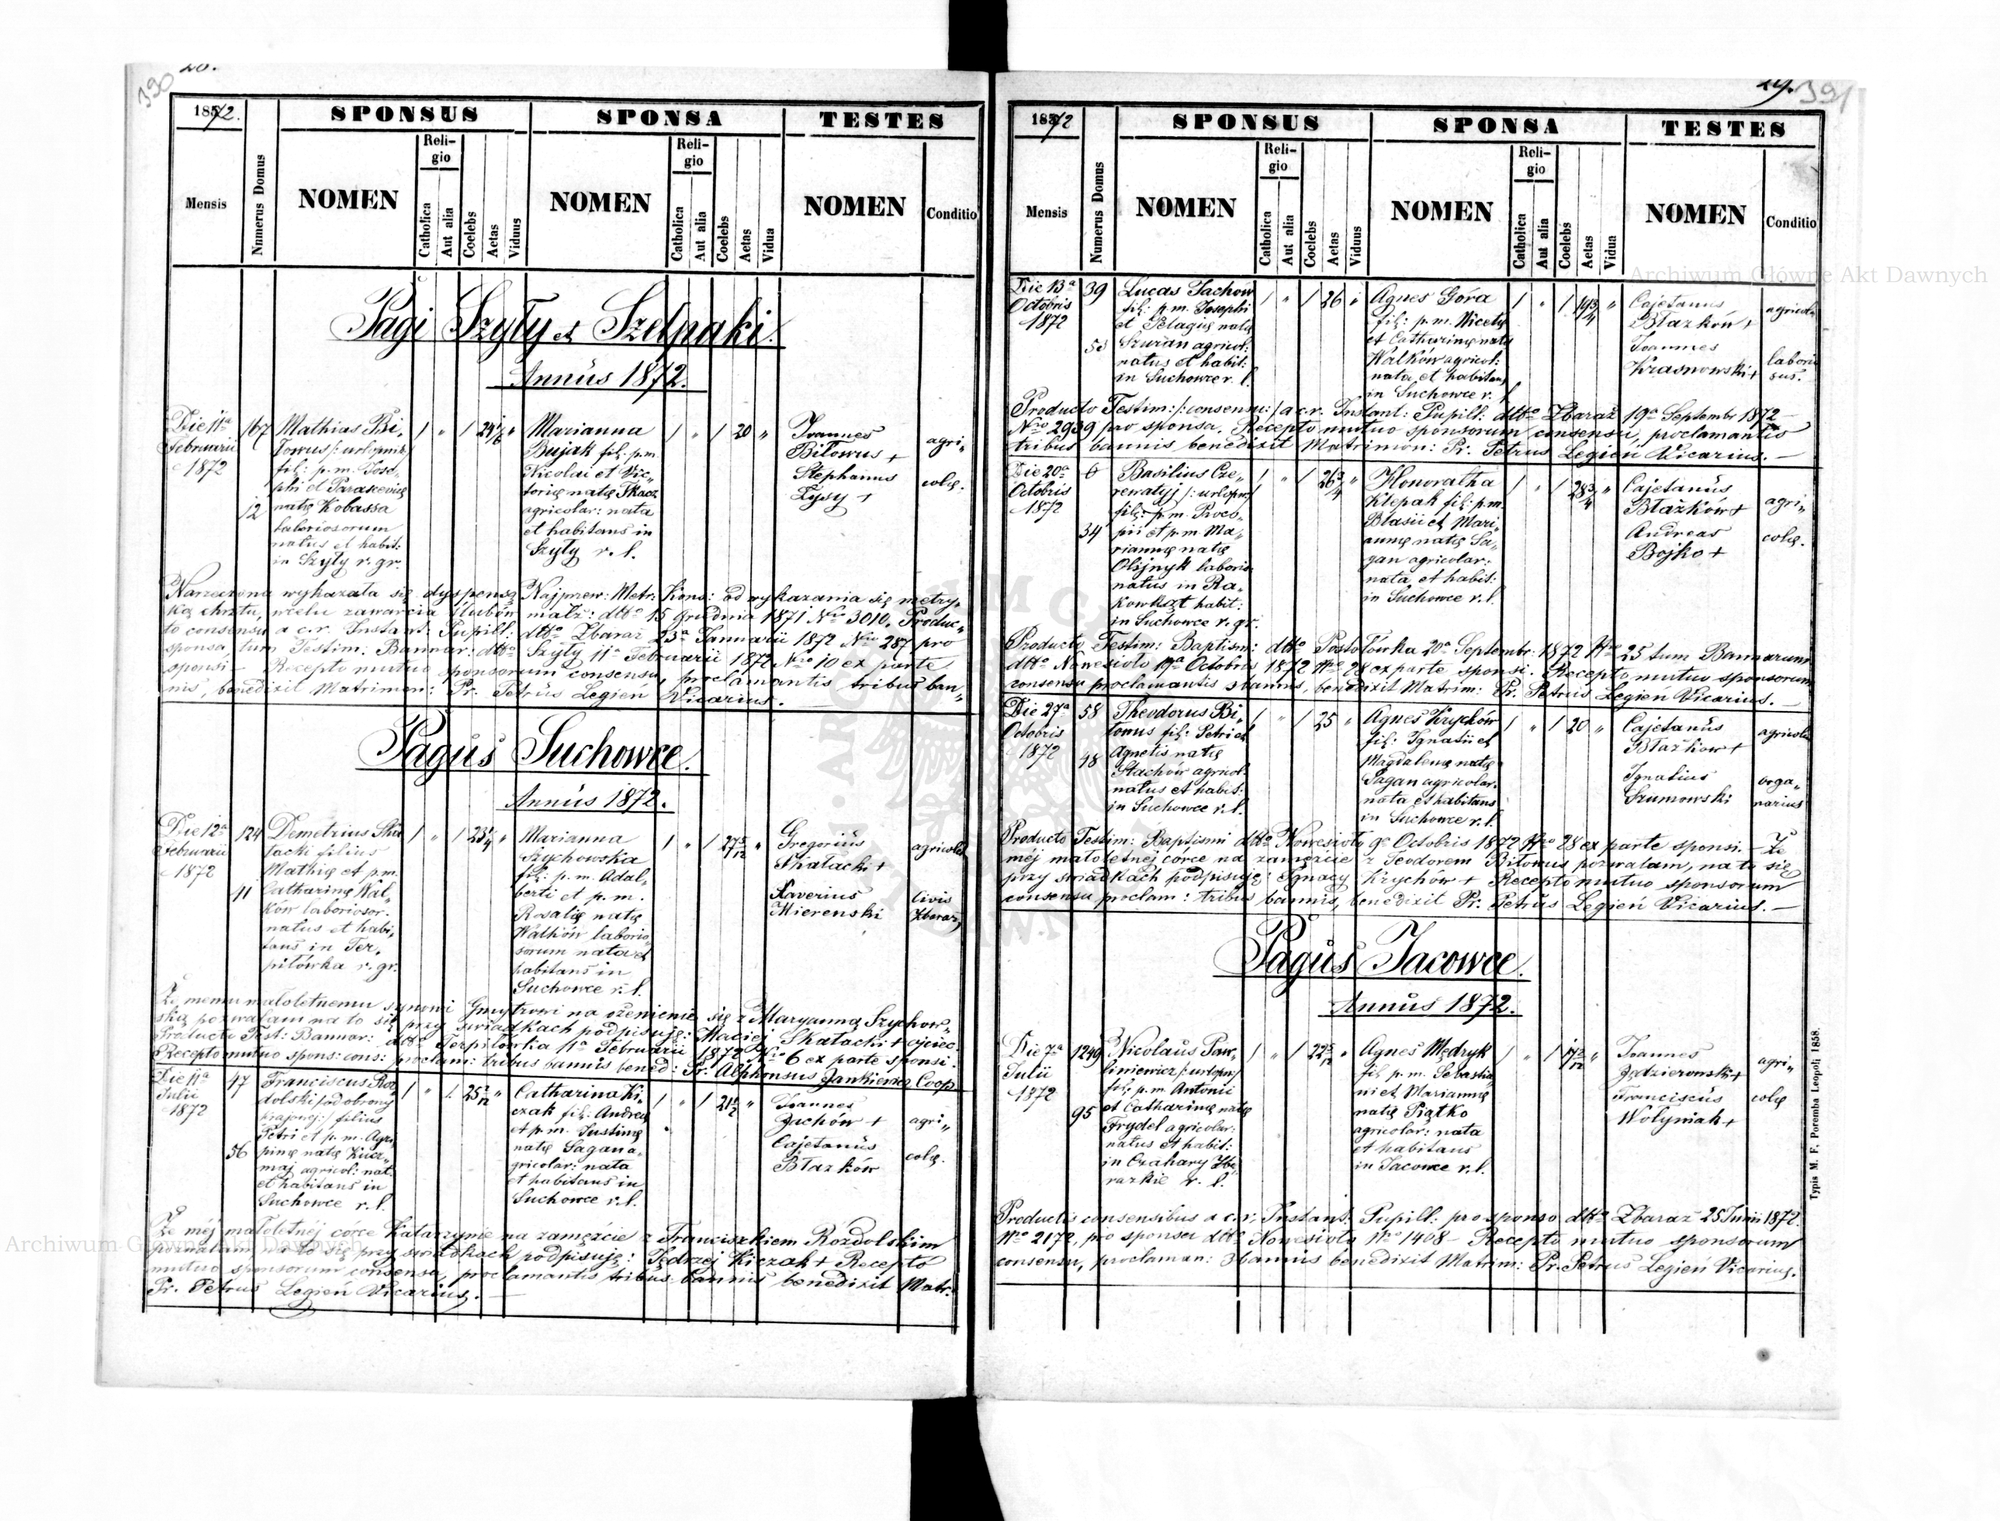 390
28.
1872.
SPONSUS
SPONSA
TESTES
Mensis
Numerus Domus
NOMEN
Reli-
gio
Catholica
Aut alia
Coelebs
Aetas
Viduus
NOMEN
Reli-
gio
Catholica
Aut alia
Coelebs
Aetas
Vidua
NOMEN
Conditio
Pagi Szyły et Szelpaki.
Annus 1872.
Die 11a
Februarii
1872
167
12
Mathias Bi-
towus /: urlopnik
fil: p.m. Jose-
phi et Parascevię
natę Kobassa
laboriosorum
natus et habit:
in Szyły r. gr.
Marianna
Bujak fil: p.m.
Nicolai et Vic-
torię natę Tkacz
agricolar: nata
et habitans in
Szyły r. l.
20
Joannes
Bitowus +
Stephanus
Łysy +
agri-
colę.
Narzeczona wykazała się dyspensą Najprzew: Metr: Kons: od wykazania się metry-
ką chrztu, w celu zawarcia ślubów małż: dtto 15 Grudnia 1871 Nro 3010. Produc-
to consensu a c.r. Instant: Pupill: dtto Zbaraż 23a Januarii 1872 Nro 287 pro
sponso, tum Testim: Bannar: dtto Szyły 11a Februarii 1872 Nro 10 ex parte
sponsi — Recepto mutuo sponsorum consensu, proclamantis tribus ban-
nis, benedixit Matrimon: Pr. Petrus Legień Vicarius. —
Pagus Suchowce.
Annus 1872.
Die 12a
Februarii
1872
124
41
Demetrius Ska
łacki filius
Mathię et p.m.
Catharinę Wal-
ków laboriosor.
natus et habi-
tans in Ter-
pilówka r. gr.
23 1/4
Marianna
Szychowska
fil: p.m. Adal-
berti et p.m.
Rosalię natę
Walków laborio-
sorum nata et
habitans in
Suchowce r. l.
Gregorius
Skałacki +
Xaverius
Mierenski
agricola
Civis
Zbaraz.
Że memu małoletniemu synowi Dmytrowi na ożenienie się z Maryanną Szychow-
ską pozwalam na to się przy świadkach podpisuję: Maciej Skałacki + ojciec.
Producto Test: Bannar: dtto Terpilówka 11a Februarii 1872 Nro 6 ex parte sponsi.
Recepto mutuo spons: cons: proclam: tribus bannis bened: Pr. Alphonsus Jankiewicz Coop.
Die 11a
Julii
1872
47
56
Franciscus Roz
dolski /: od obrony
krajowej :/ filius
Petri et p.m. Agri
pinę natę Kucz-
maj agricol: nat
et habitans in
Suchowce r. l.
Catharina Ki-
czak fil: Andreę
et p.m. Justinę
natę Sagan a-
gricolar: nata
et habitans in
Suchowce r. l.
Joannes
Zachów +
Cajetanus
Błazków
agri-
colę.
Że mej małoletnej córce Katarzynie na zamęzcie z Franciszkiem Rozdolskim
pozwalam na to się przy świadkach podpisuję: Jędrzej Kiczak + Recepto
mutuo sponsorum consensu, proclamantis tribus bannis benedixit Matr:
Pr. Petrus Legień Vicarius. —
29.
391
1872
SPONSUS
SPONSA
TESTES
Mensis
Numerus Domus
NOMEN
Reli-
gio
Catholica
Aut alia
Coelebs
Aetas
Viduus
NOMEN
Reli-
gio
Catholica
Aut alia
Coelebs
Aetas
Vidua
NOMEN
Conditio
Die 13a
Octobris
1872
39
Lucas Stachów
fil: p.m. Josephi
et Pelagię natę
Szuran agricol:
natus et habit:
in Suchowce r. l.
26
Agnes Góra
fil: p.m. Nicetę
et Catharinę natę
Walków agricol:
nata et habitans
in Suchowce r. l.
19 3/4
Cajetanus
Błazków +
Joannes
Krasnowski +
agricola
laborio
sus.
Producto Testim: /: consensu :/ a c.r. Instant: Pupill: dtto Zbaraż 19a Septembr 1872
Nro 2939 pro sponsa. Recepto mutuo sponsorum consensu, proclamantis
tribus bannis benedixit Matrimon: Pr. Petrus Legień Vicarius. —
Die 20a
Octobris
1872
6
34
Basilius Cze-
rewatyj /: urlopnik
fil: p.m. Proco-
pii et p.m. Ma-
riannę natę
Olijnyk laborio
natus in Ra-
kowkąt habit:
in Suchowce r. gr.
26 3/4
Honoratha
Klepak fil: p.m.
Blasii et Mari-
annę natę Sa-
gan agricolar:
nata et habit:
in Suchowce r. l.
28 3/4
Cajetanus
Błazków +
Andreas
Bojko +
agri-
colę.
Producto Testim: Baptism: dtto Postołówka 20a Septembr: 1872 Nro 25 tum Bannarum
dtto Nowesioło 19a Octobris 1872 Nro 28 ex parte sponsi. Recepto mutuo sponsorum
consensu proclamantis 3 bannis, benedixit Matrim: Pr. Petrus Legień Vicarius. —
Die 27a
Octobris
1872
58
48
Theodorus Bi-
towus fil: Petri et
Agnetis natę
Stachów agricol:
natus et habit:
in Suchowce r. l.
25
Agnes Krychów
fil: Ignatii et
Magdalenę natę
Sagan agricolar.
nata et habitans
in Suchowce r. l.
20
Cajetanus
Błazkow +
Ignatius
Szumowski
agricola
orga-
narius
Producto Testim: Baptismi dtto Nowesioło 9a Octobris 1872 Nro 28 ex parte sponsi. — Że
mej małoletnej córce na zamęzcie z Teodorem Bitowus pozwalam, na to się
przy świadkach podpisuję: Ignacy Krychów + Recepto mutuo sponsorum
consensu proclam: tribus bannis, benedixit Pr. Petrus Legień Vicarius. —
Pagus Jacowce.
Annus 1872.
Die 7a
Julii
1872
1249
95
Nicolaus Paw-
liniewicz /: urlopn:/
fil: p.m. Antonii
et Catharinę natę
Frydel agricolar:
natus et habit:
in Czahary Zba
razkie r. l.
Agnes Mędryk
fil: p.m. Sebastia
ni et Mariannę
natę Piątko
agricolar: nata
et habitans
in Jacowce r. l.
Joannes
Zdzierowski +
Franciscus
Wołyniak +
agri-
colę
Productis consensibus a c.r. Instant: Pupill: pro sponso dtto Zbaraż 25 Junii 1872.
Nro 2172, pro sponsa dtto Nowesioło Nro 1408 — Recepto mutuo sponsorum
consensu, proclaman: 3 bannis benedixit Matrim: Pr. Petrus Legień Vicarius.
Typis M. F. Poremba Leopoli 1858.
Archiwum Główne Akt Dawnych
Archiwum Główne Akt Dawnych